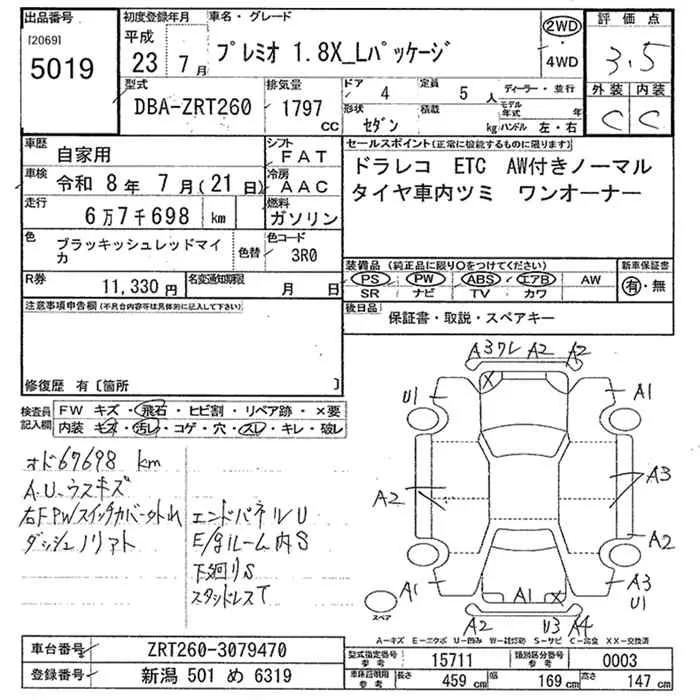 出品番号 初度登録年月 車名・グレード 評価点
[2069] 平成 2WD
5019 23 7月 プレミオ 1.8X_Lパッケージ ・4WD 3.5
型式 排気量 ドア 4 定員 5人 ディーラー・並行 外装 内装
DBA-ZRT260 1797 cc 形状 セダン 積載 kg モデル年式 年 ハンドル 左・右 C C
車歴 自家用 シフト FAT セールスポイント(正常に機能するものに限ります)
車検 令和 8年 7月(21日) 冷房 AAC ドラレコ ETC AW付きノーマル
走行 6万7千698 km 燃料 ガソリン タイヤ車内ツミ ワンオーナー
色 ブラッキッシュレッドマイカ 色替 色コード 3R0
装備品 (純正品に限り○をつけてください) 新車保証書
R券 11,330円 名変通知期限 月 日 PS PW ABS エアB AW 有・無
SR ナビ TV カワ
注意事項申告欄(不具合内容等は具体的に記入して下さい) 後日品 保証書・取説・スペアキー
修復歴 有〔箇所 〕
A3ワレ A2 A2
検査員記入欄 FW キズ・飛石・ヒビ割・リペア跡・×要
内装 キズ・汚レ・コゲ・穴・スレ・キレ・破レ
U1 A1
オド67698 km
A.U-ウスキズ
右FPWスイッチカバー外れ
ダッシュノリアト
エンドパネルU
E/gルーム内S
下廻りS
スタッドレスT
A2 A3
A2
A1 A1 A3
U1
スペア A2 U3 A4
A-キズ E-エクボ U-凹み W-補修跡 S-サビ C-腐食 XX-交換済
車台番号 ZRT260-3079470 型式指定番号 参考 15711 類別区分番号 参考 0003
登録番号 新潟 501 め 6319 車検証明用 参考 長さ 459 cm 幅 169 cm 高さ 147 cm